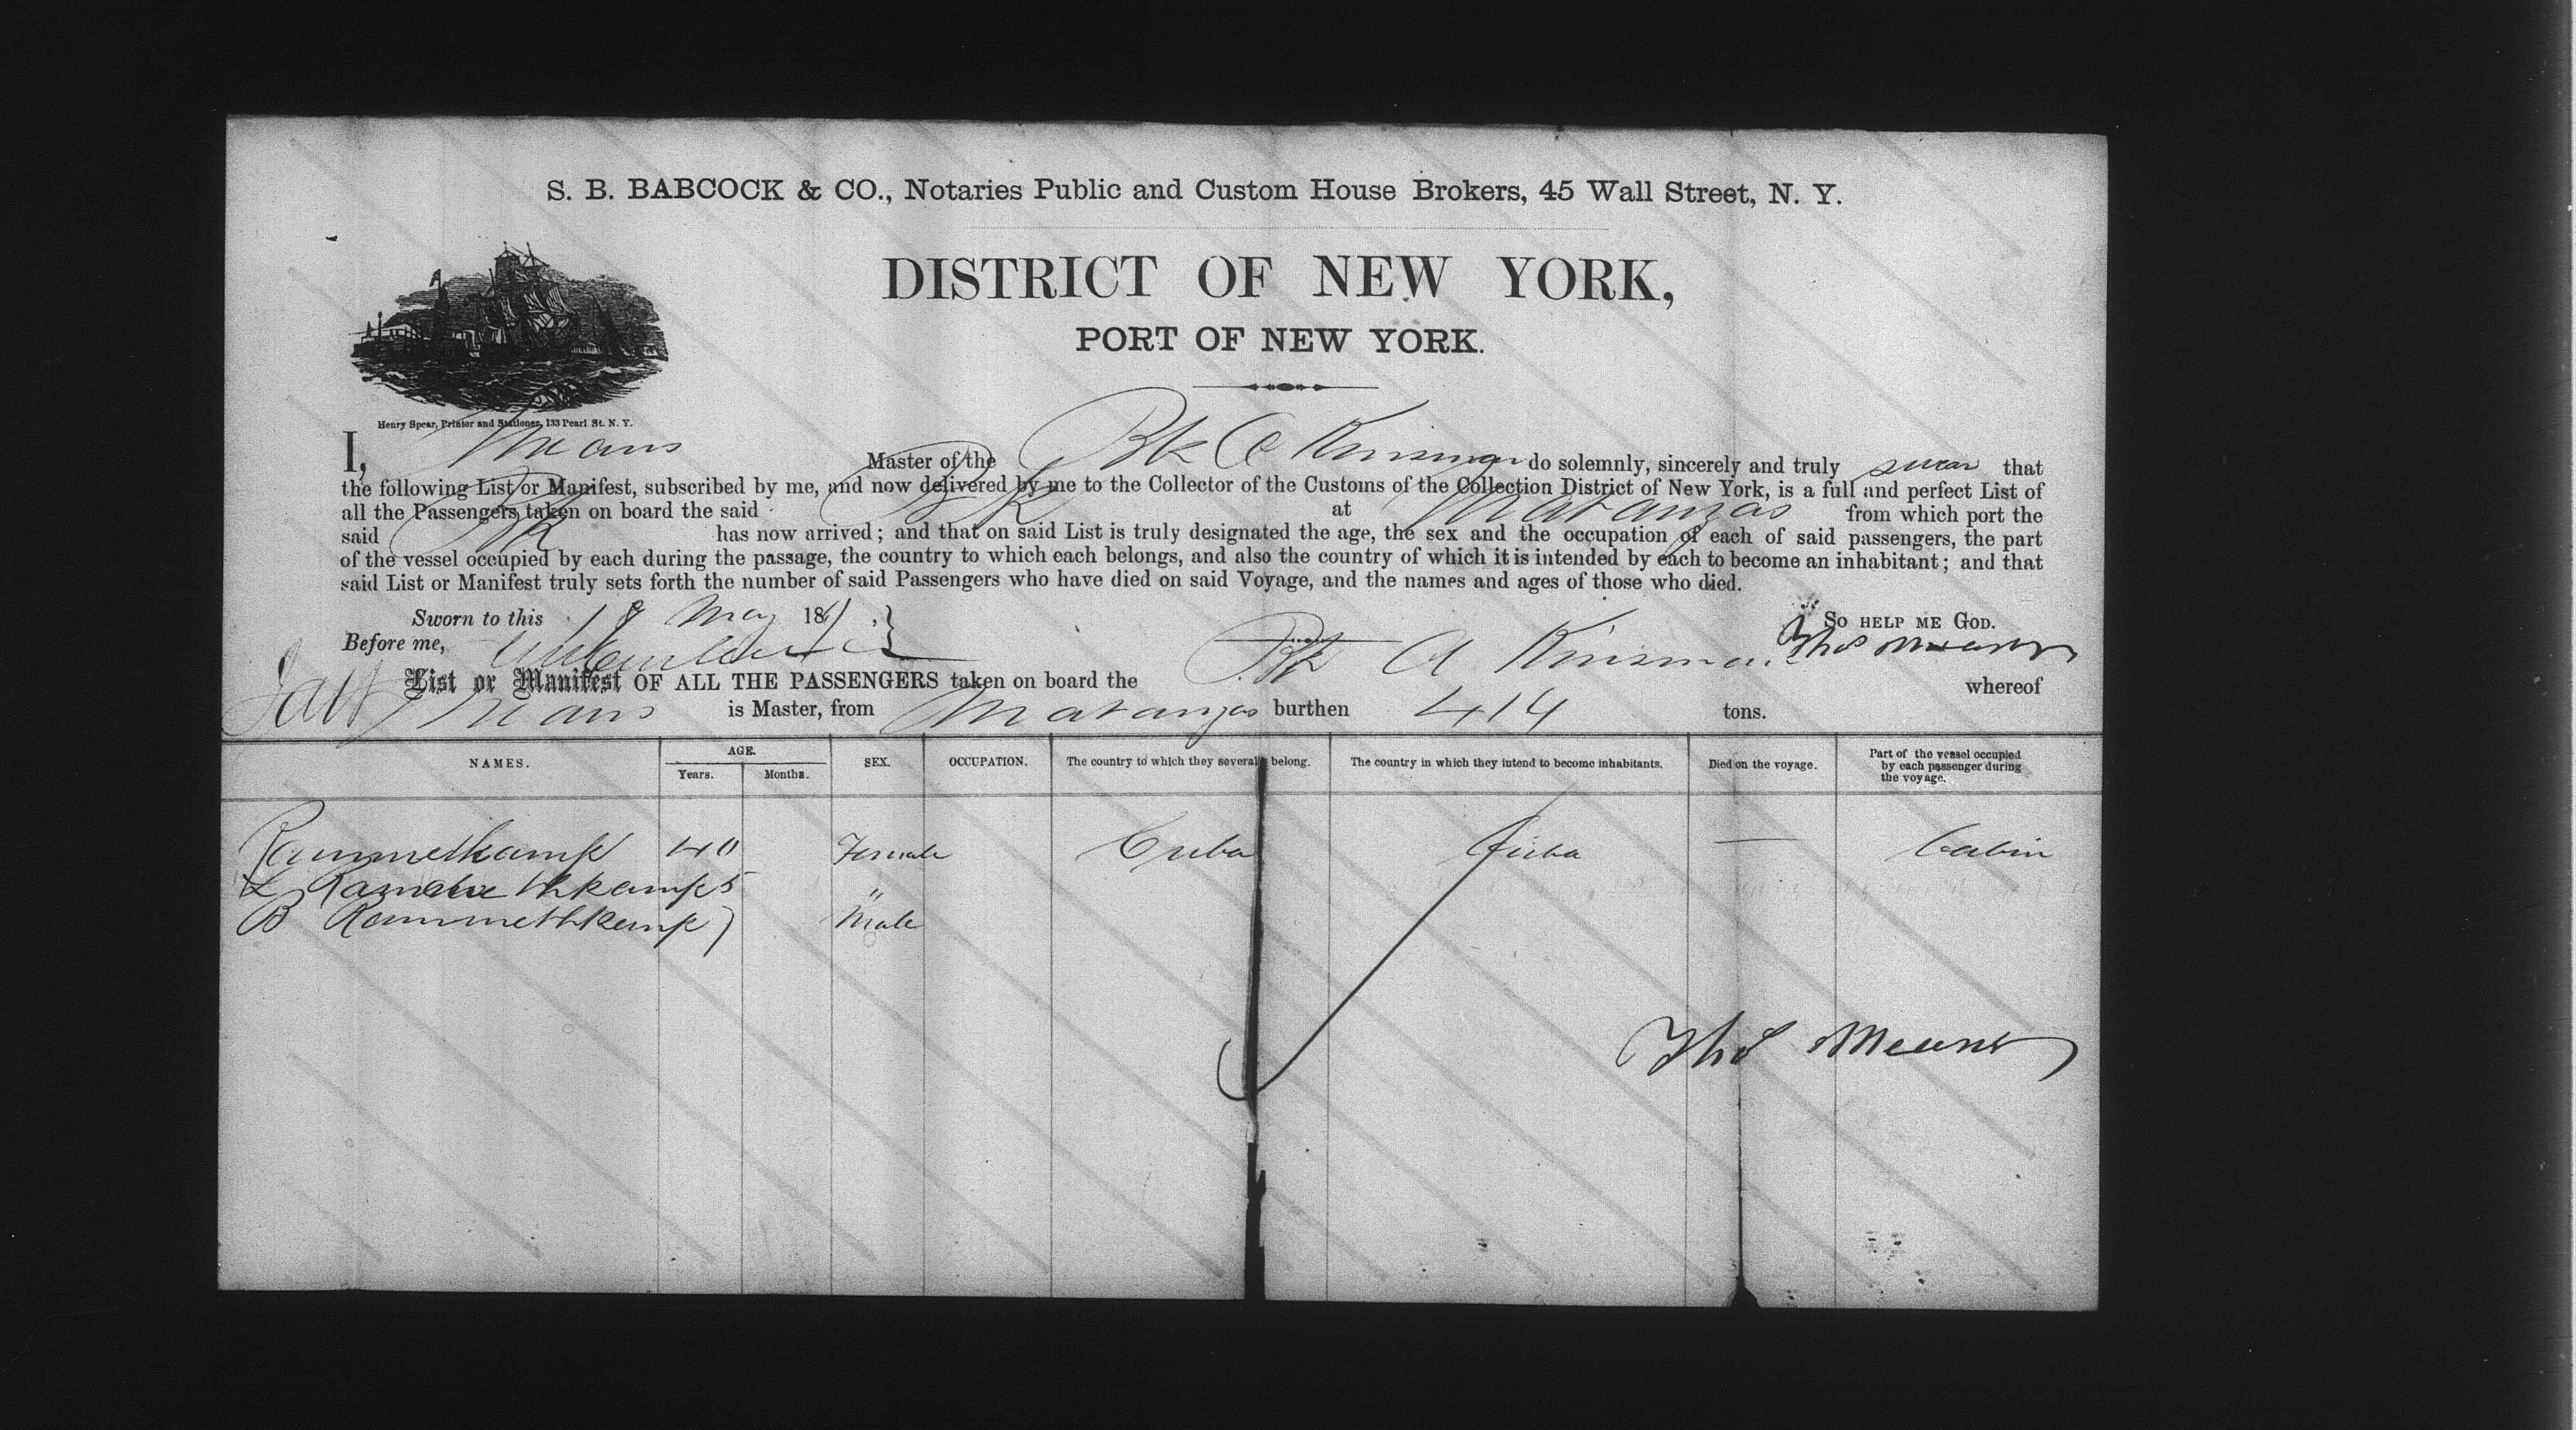 S. B. BABCOCK & CO., Notaries Public and Custom House Brokers, 45 Wall Street, N. Y.
DISTRICT OF NEW YORK,
PORT OF NEW YORK.
Henry Spear, Printer and Stationer, 133 Pearl St. N. Y.
I, Means Master of the Bk A Kinsman do solemnly, sincerely and truly swear that
the following List or Manifest, subscribed by me, and now delivered by me to the Collector of the Customs of the Collection District of New York, is a full and perfect List of
all the Passengers taken on board the said Bk at Matanzas from which port the
said Bk has now arrived; and that on said List is truly designated the age, the sex and the occupation of each of said passengers, the part
of the vessel occupied by each during the passage, the country to which each belongs, and also the country of which it is intended by each to become an inhabitant; and that
said List or Manifest truly sets forth the number of said Passengers who have died on said Voyage, and the names and ages of those who died.
Sworn to this 18 May 1861 So HELP ME GOD.
Before me, Thos Means
List or Manifest OF ALL THE PASSENGERS taken on board the Bk A Kinsman whereof
Means is Master, from Matanzas burthen 414 tons.
NAMES. AGE. Years. Months. SEX. OCCUPATION. The country to which they severally belong. The country in which they intend to become inhabitants. Died on the voyage. Part of the vessel occupied by each passenger during the voyage.
Rammelkamp 40 Female Cuba Cuba — Cabin
L 5 "
B Rammethkamp 7 Male
Thos Means